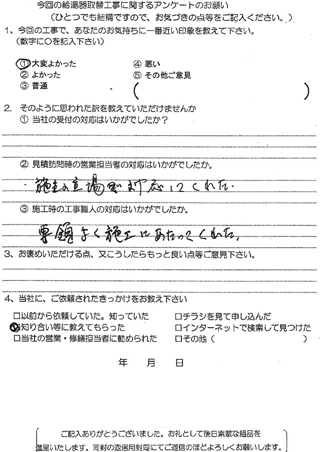 今回の給湯器取替工事に関するアンケートのお願い
(ひとつでも結構ですので、お気づきの点等をご記入ください。)
1、今回の工事で、あなたのお気持ちに一番近い印象を教えて下さい。
(数字に〇を記入下さい)
①大変よかった ④ 悪い
② よかった ⑤ その他ご意見
③ 普通 ( )
2、そのように思われた訳を教えていただけませんか
① 当社の受付の対応はいかがでしたか?
② 見積訪問時の営業担当者の対応はいかがでしたか。
・施主の立場で対応してくれた。
③ 施工時の工事職人の対応はいかがでしたか。
要領よく施工にあたってくれた。
3、お褒めいただける点、又こうしたらもっと良い点等ご意見下さい。
4、当社に、ご依頼されたきっかけをお教え下さい
□以前から依頼していた。知っていた □チラシを見て申し込んだ
知り合い等に教えてもらった □インターネットで検索して見つけた
□当社の営業・修繕担当者に勧められた □その他 ( )
年 月 日
ご記入ありがとうございました。お礼として後日素敵な粗品を
進呈いたします。同封の返信用封筒にてご返信のほどよろしくお願いします。